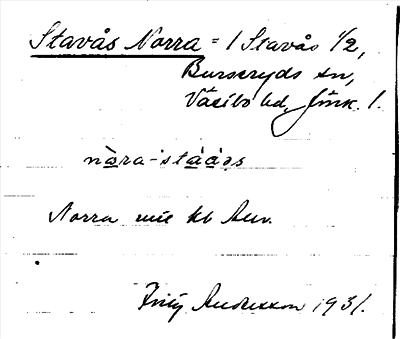 Stavås Norra = 1 Stavås 1/2,
Burseryds sn,
Västbo hd, Jönk. l.
nò̱ra-stá̱á̱s
Norra kb Anv.
Andersson 1931.